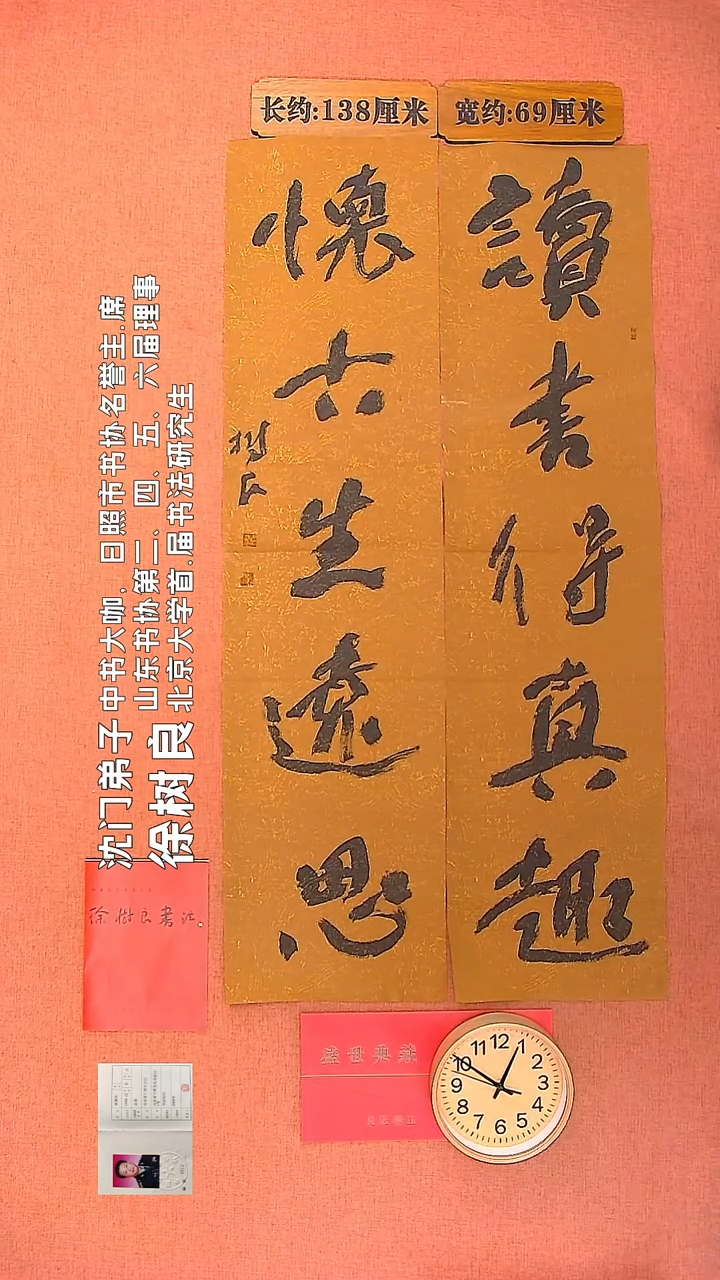 长约:138厘米
宽约:69厘米
讀書得真趣
懷古生遠思
树良
沈门弟子 中书大咖，日照市书协名誉主.席
山东书协第三、四、五、六届理事
徐树良 北京大学首.届书法研究生
徐树良书法
盛世典藏
12
1
2
3
4
5
6
7
8
9
10
11